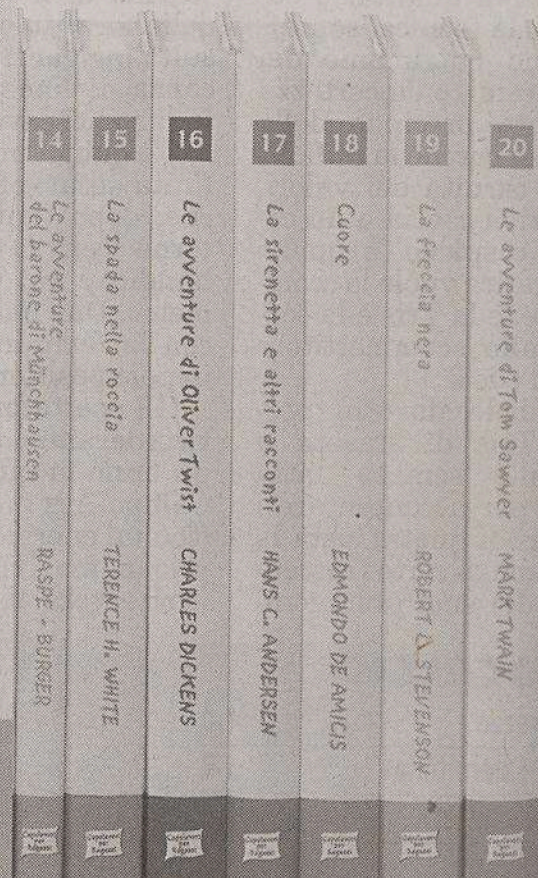 14
Le avventure
del barone di Münchhausen
RASPE - BURGER
Capolavori
per
Ragazzi
15
La spada nella roccia
TERENCE H. WHITE
Capolavori
per
Ragazzi
16
Le avventure di Oliver Twist
CHARLES DICKENS
Capolavori
per
Ragazzi
17
La sirenetta e altri racconti
HANS C. ANDERSEN
Capolavori
per
Ragazzi
18
Cuore
EDMONDO DE AMICIS
Capolavori
per
Ragazzi
19
La freccia nera
ROBERT STEVENSON
Capolavori
per
Ragazzi
20
Le avventure di Tom Sawyer
MARK TWAIN
Capolavori
per
Ragazzi